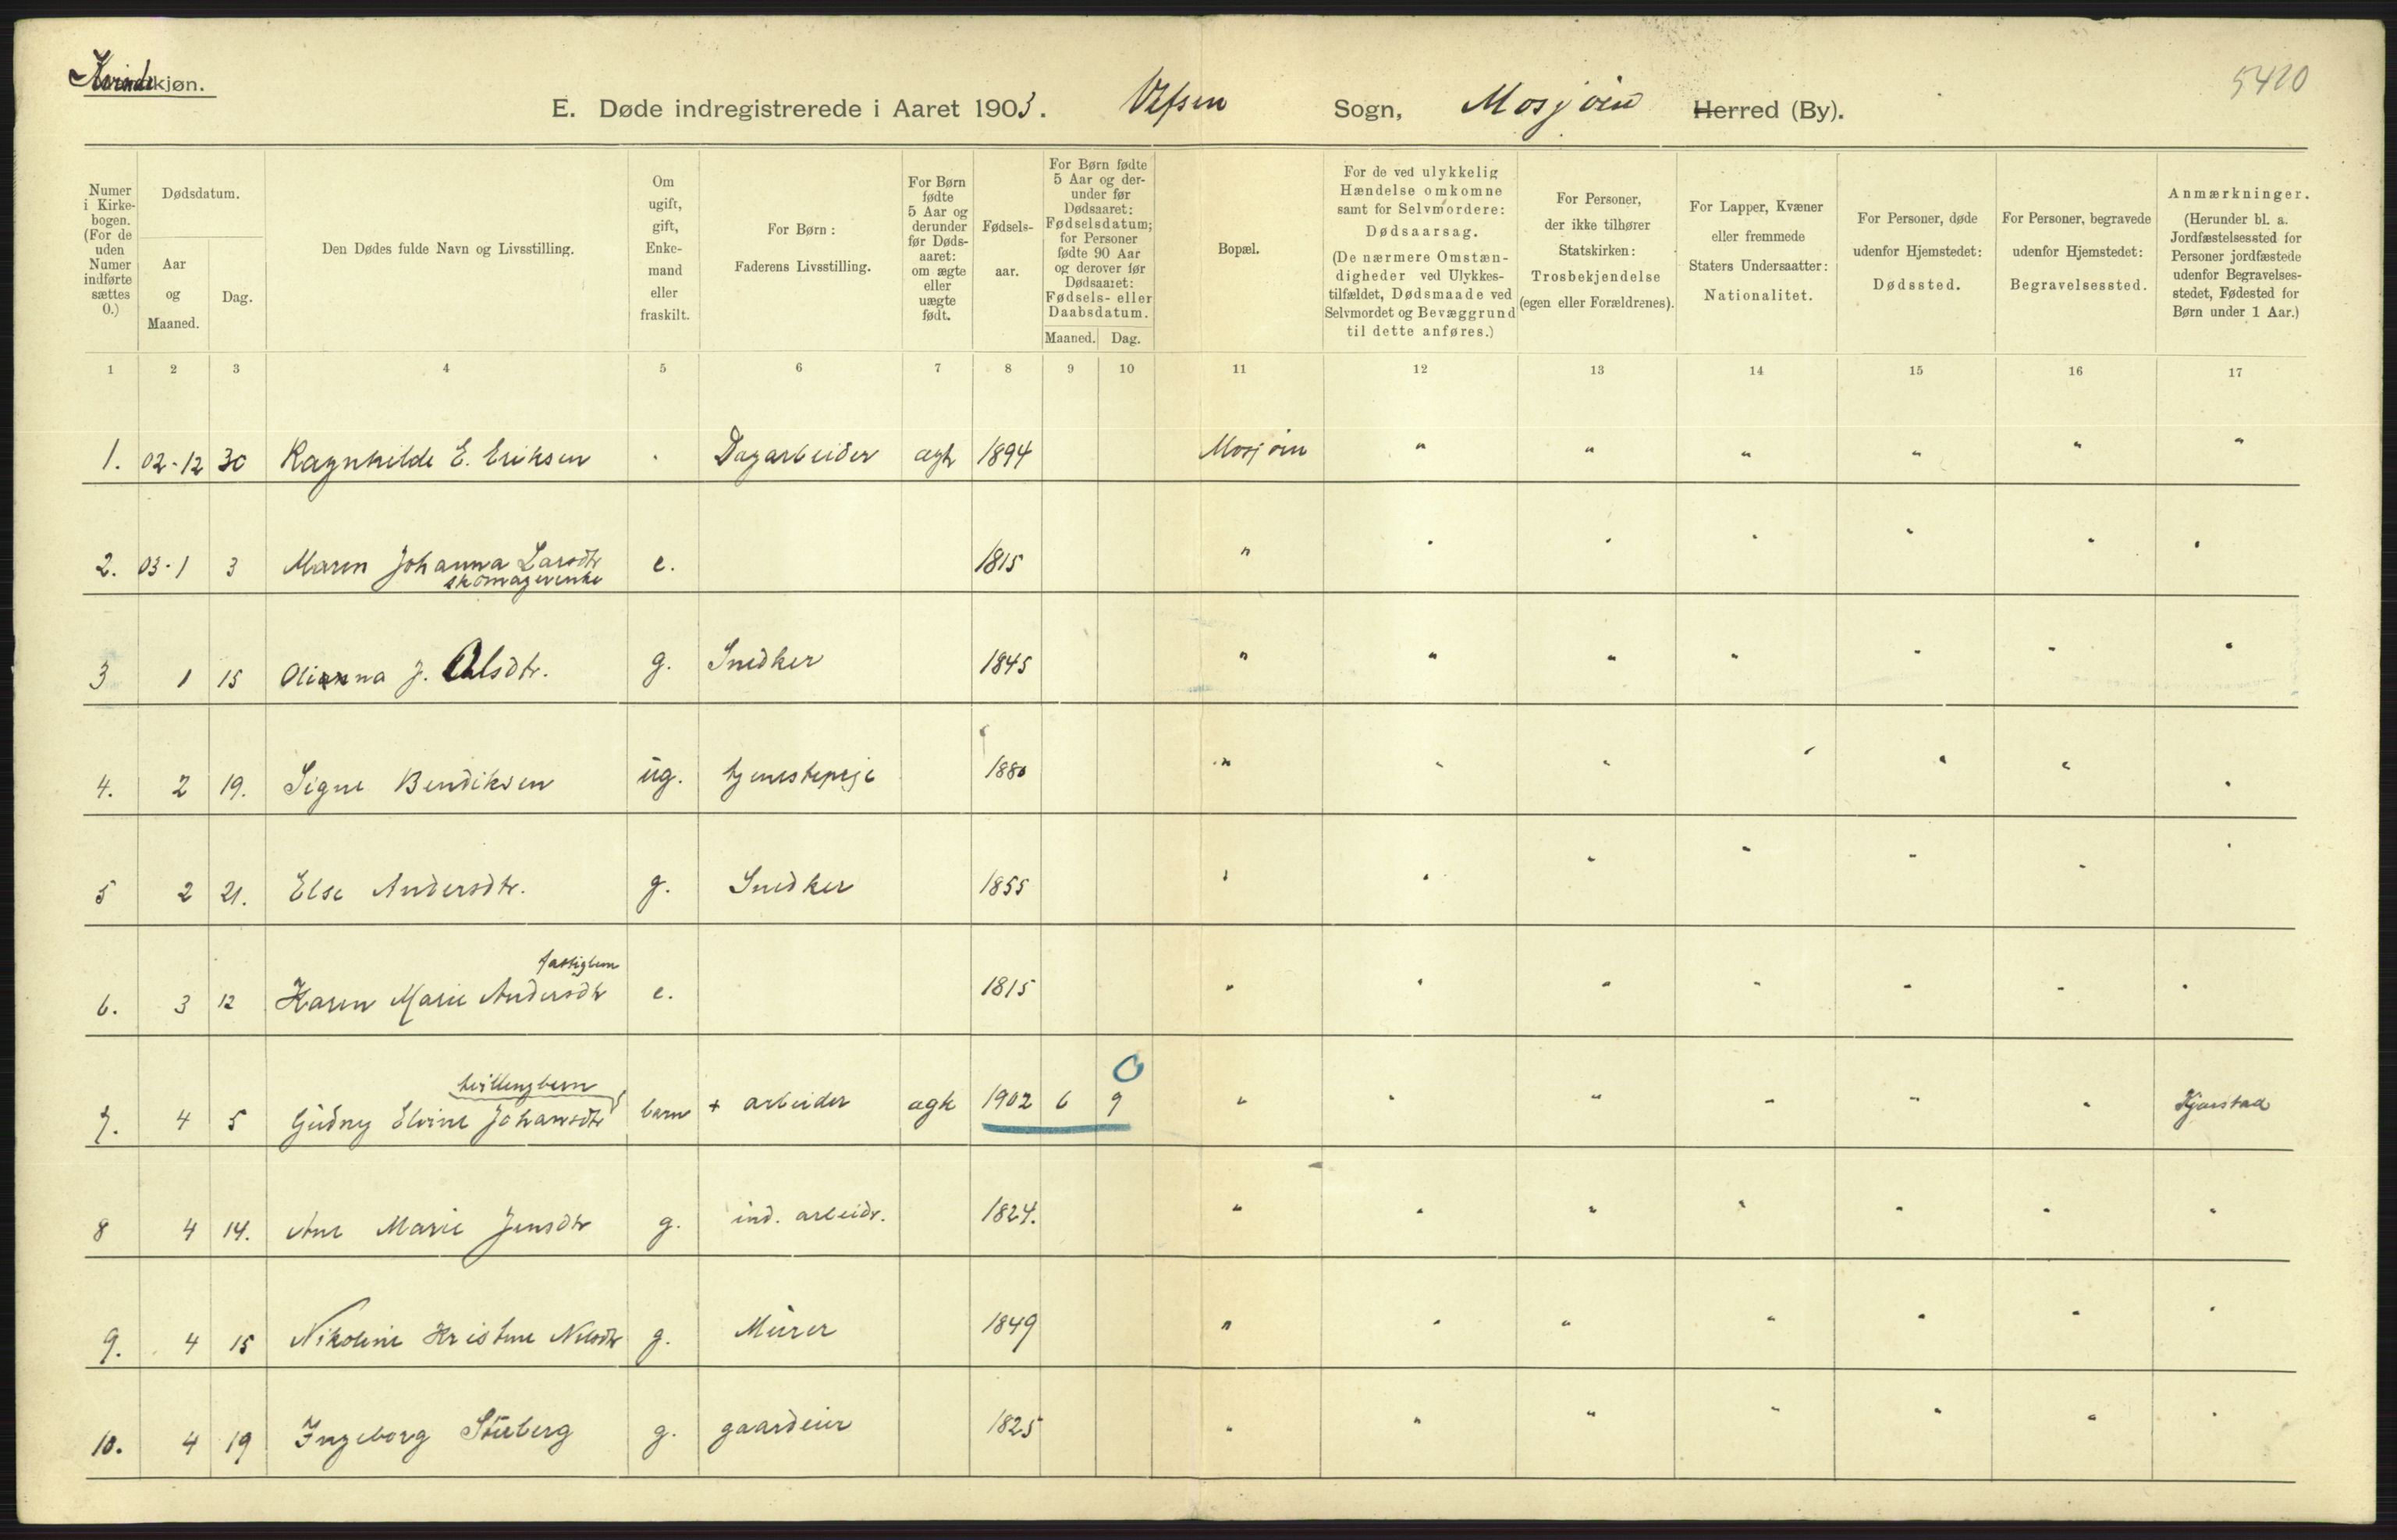 Kvindekjøn.
5410
E. Døde indregistrerede i Aaret 1903. Vefsen Sogn, Mosjøen Herred (By).
Numer i Kirkebogen. (For de uden Numer indførte sættes 0.)
Dødsdatum.
Aar og Maaned.
Dag.
Den Dødes fulde Navn og Livsstilling.
Om ugift, gift, Enkemand eller fraskilt.
For Børn: Faderens Livsstilling.
For Børn fødte 5 Aar og derunder før Dødsaaret: om ægte eller uægte født.
Fødselsaar.
For Børn fødte 5 Aar og derunder før Dødsaaret: Fødselsdatum; for Personer fødte 90 Aar og derover før Dødsaaret: Fødsels- eller Daabsdatum.
Maaned. Dag.
Bopæl.
For de ved ulykkelig Hændelse omkomne samt for Selvmordere: Dødsaarsag. (De nærmere Omstændigheder ved Ulykkestilfældet, Dødsmaade ved Selvmordet og Bevæggrund til dette anføres.)
For Personer, der ikke tilhører Statskirken: Trosbekjendelse (egen eller Forældrenes).
For Lapper, Kvæner eller fremmede Staters Undersaatter: Nationalitet.
For Personer, døde udenfor Hjemstedet: Dødssted.
For Personer, begravede udenfor Hjemstedet: Begravelsessted.
Anmærkninger. (Herunder bl. a. Jordfæstelsessted for Personer jordfæstede udenfor Begravelsesstedet, Fødested for Børn under 1 Aar.)
1 2 3 4 5 6 7 8 9 10 11 12 13 14 15 16 17
1. 02-12 30 Ragnhilde E. Eriksen " Dagarbeider ægte 1894 Mosjøen " " " " " "
2. 03-1 3 Maren Johanna Larsdtr e. 1815 " " " " " " "
skomagerenke
3 1 15 Olianna J. Olsdtr. g. Snedker 1845 " " " " " " "
4. 2 19. Signe Bendiksen ug. tjenestepige 1880 " " " " " " "
5 2 21. Else Andersdtr. g. Snedker 1855 " " " " " " "
fattiglem
6. 3 12 Karen Marie Andersdtr e. 1815 " " " " " " "
tvillingbarn
7. 4 5 Gudny Elvine Johansdtr barn + arbeider ægte 1902 6 9 " " " " " "
8 4 14. Ane Marie Jensdtr g. ind. arbeidr. 1824. " " " " " " "
9. 4 15 Nikoline Kristine Nilsdtr g. Murer 1849 " " " " " " "
10. 4 19 Ingeborg g. gaardeier 1825 " " " " " " "